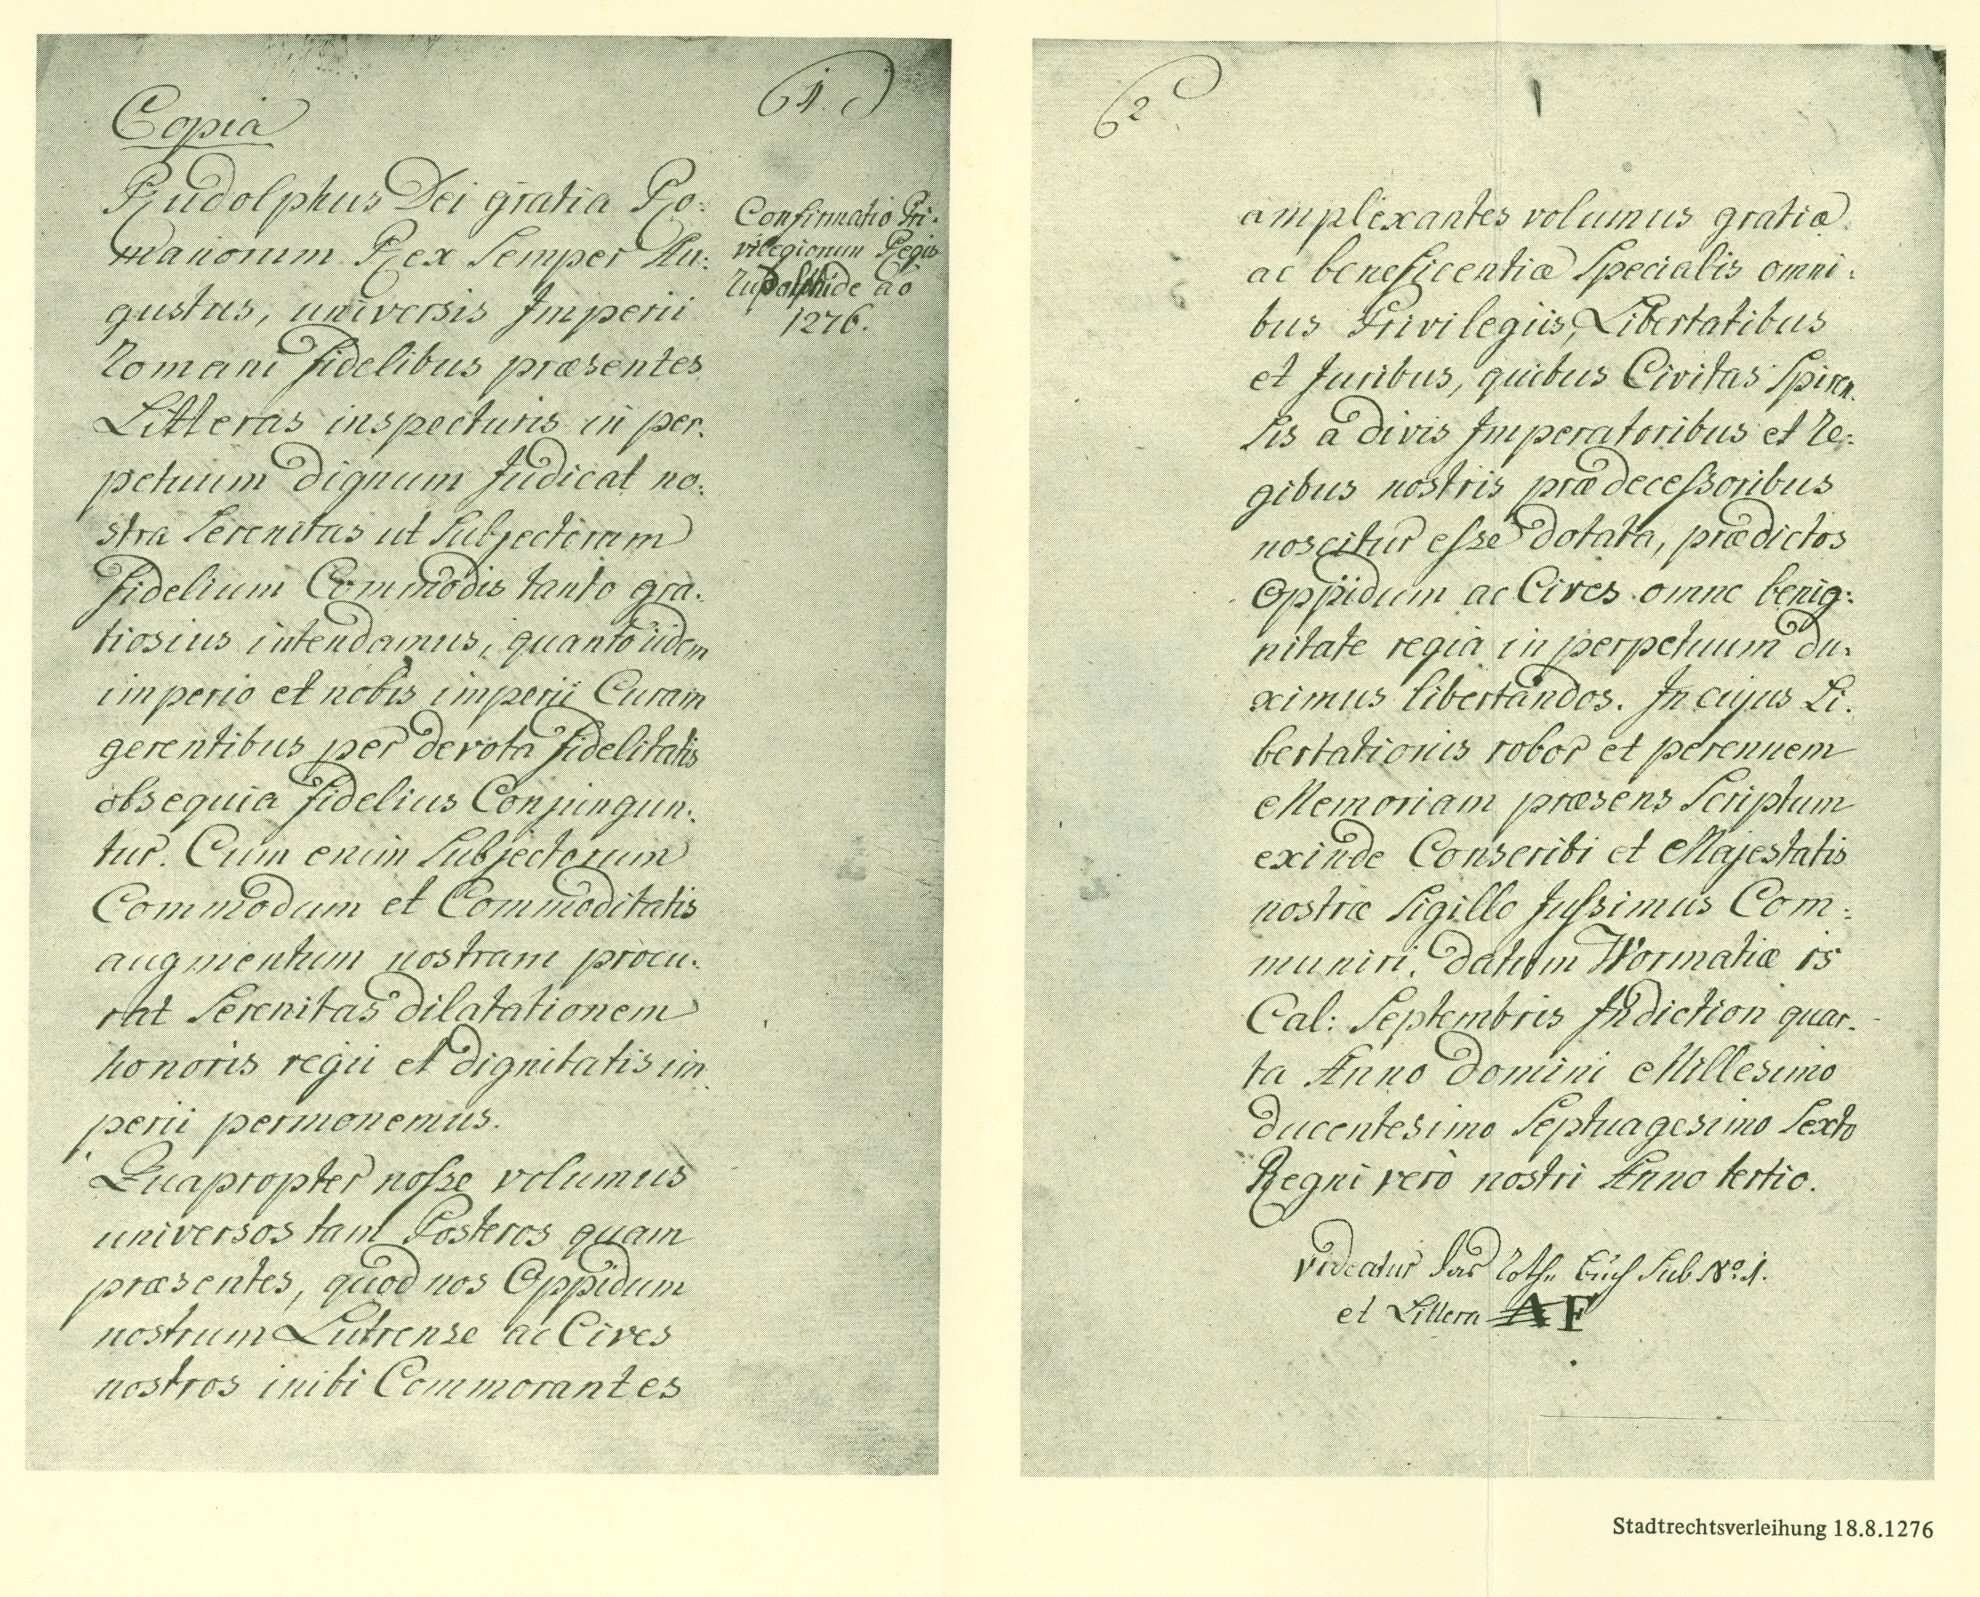 1.
Copia
Rudolphus Dei gratia Ro:
manorum Rex Semper Au:
gustus, universis Imperii
Romani Fidelibus præsentes
Litteras inspecturis in per:
petuum Dignum Judicat no:
stra Serenitas ut Subjectorum
Fidelium Commodis tanto gra:
tiosius intendamus, quanto iidem
imperio et nobis imperii Curam
gerentibus per devota Fidelitatis
obsequia Fidelius Conjungun:
tur. Cum enim Subjectorum
Commodum et Commoditatis
augmentum nostram procu:
rat Serenitas dilatationem
honoris regii et dignitatis im:
perii permonemus.
Quapropter nosse volumus
universos tam Posteros quam
præsentes, quod nos Oppidum
nostrum Lutrense ac Cives
nostros inibi Commorantes
Confirmatio Pri:
vilegiorum Regis
Rudolphi de ao
1276.
2
amplexantes volumus gratiæ
ac beneficentiæ Specialis omni:
bus Privilegiis, Libertatibus
et Juribus, quibus Civitas Spiren:
sis a divis Imperatoribus et Re:
gibus nostris prædecessoribus
noscitur esse dotata, prædictos
Oppidum ac Cives omne benig:
nitate regia in perpetuum du:
ximus libertandos. In cujus Li:
bertationis robor et perennem
Memoriam præsens Scriptum
exinde Conscribi et Majestatis
nostræ Sigillo Jussimus Com:
muniri. Datum Wormatiæ 15
Cal: Septembris Indiction quar:
ta Anno Domini Millesimo
Ducentesimo Septuagesimo Sexto
Regni verò nostri Anno tertio.
Videatur das Rothe Buch Sub No. 1.
et Littera A F
Stadtrechtsverleihung 18.8.1276